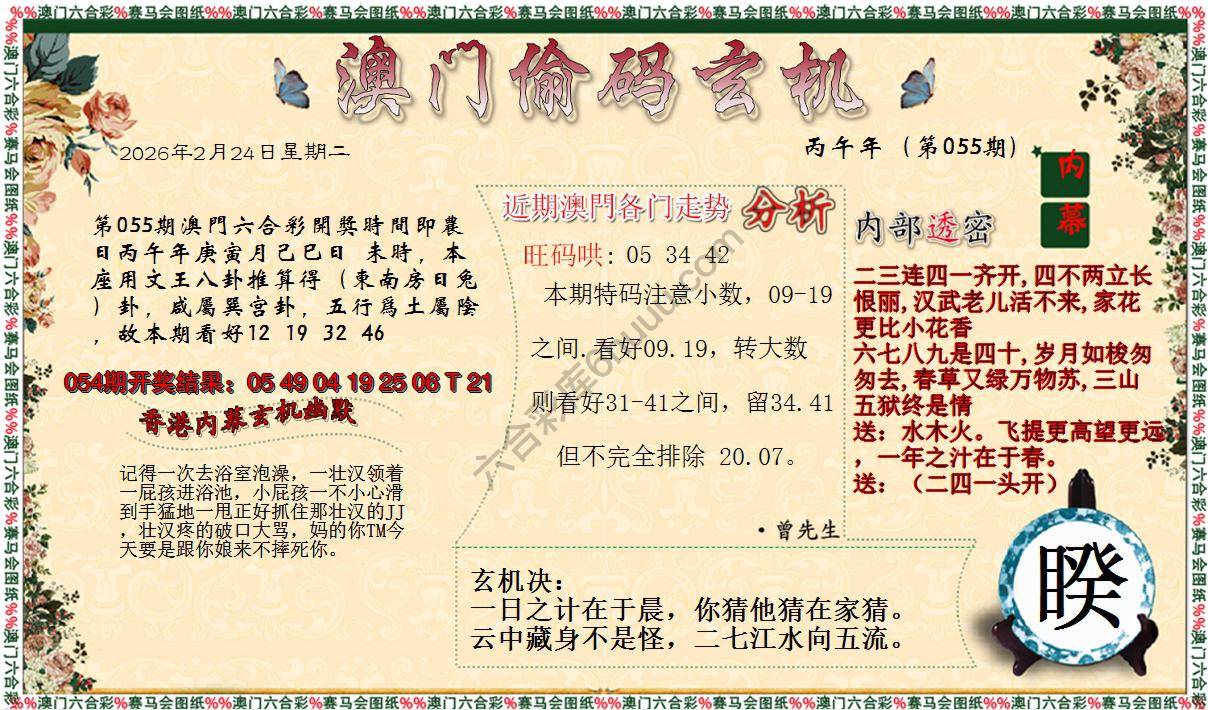 %%澳门六合彩%赛马会图纸%%澳门六合彩%赛马会图纸%%澳门六合彩%赛马会图纸
澳门偷码玄机
2026年2月24日星期二
丙午年（第055期）
内
幕
第055期澳門六合彩開獎時間即農
日丙午年庚寅月己巳日 未時，本
座用文王八卦推算得（東南房日兔
）卦，咸屬巽宫卦，五行爲土屬陰
，故本期看好12 19 32 46
054期开奖结果：05 49 04 19 25 06 T 21
香港内幕玄机幽默
记得一次去浴室泡澡，一壮汉领着
一屁孩进浴池，小屁孩一不小心滑
到手猛地一甩正好抓住那壮汉的JJ
，壮汉疼的破口大骂，妈的你TM今
天要是跟你娘来不摔死你。
近期澳門各门走势 分析
旺码哄: 05 34 42
本期特码注意小数，09-19
之间.看好09.19，转大数
则看好31-41之间，留34.41
但不完全排除 20.07。
·曾先生
内部透密
二三连四一齐开,四不两立长
恨丽,汉武老儿活不来,家花
更比小花香
六七八九是四十,岁月如梭匆
匆去,春草又绿万物苏,三山
五狱终是情
送：水木火。飞提更高望更远
，一年之汁在于春。
送：（二四一头开）
玄机决：
一日之计在于晨，你猜他猜在家猜。
云中藏身不是怪，二七江水向五流。
睽
%%澳门六合彩%赛马会图纸%%澳门六合彩%赛马会图纸%%澳门六合彩%赛马会图纸